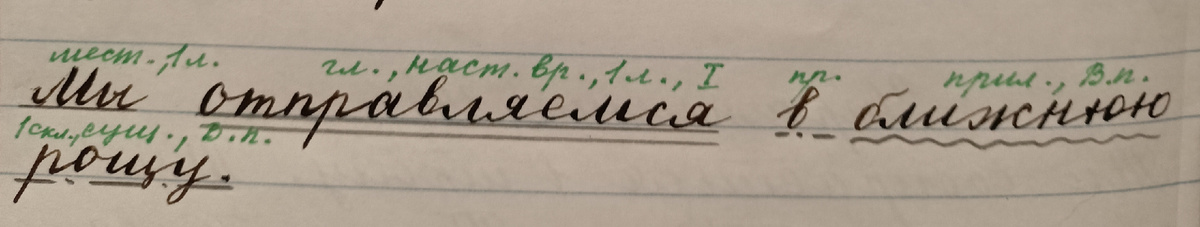 мест., 1л. гл., наст. вр., 1л., I пр. прил., В.п.
Мы отправляемся в ближнюю
1скл., сущ., В.п.
рощу.